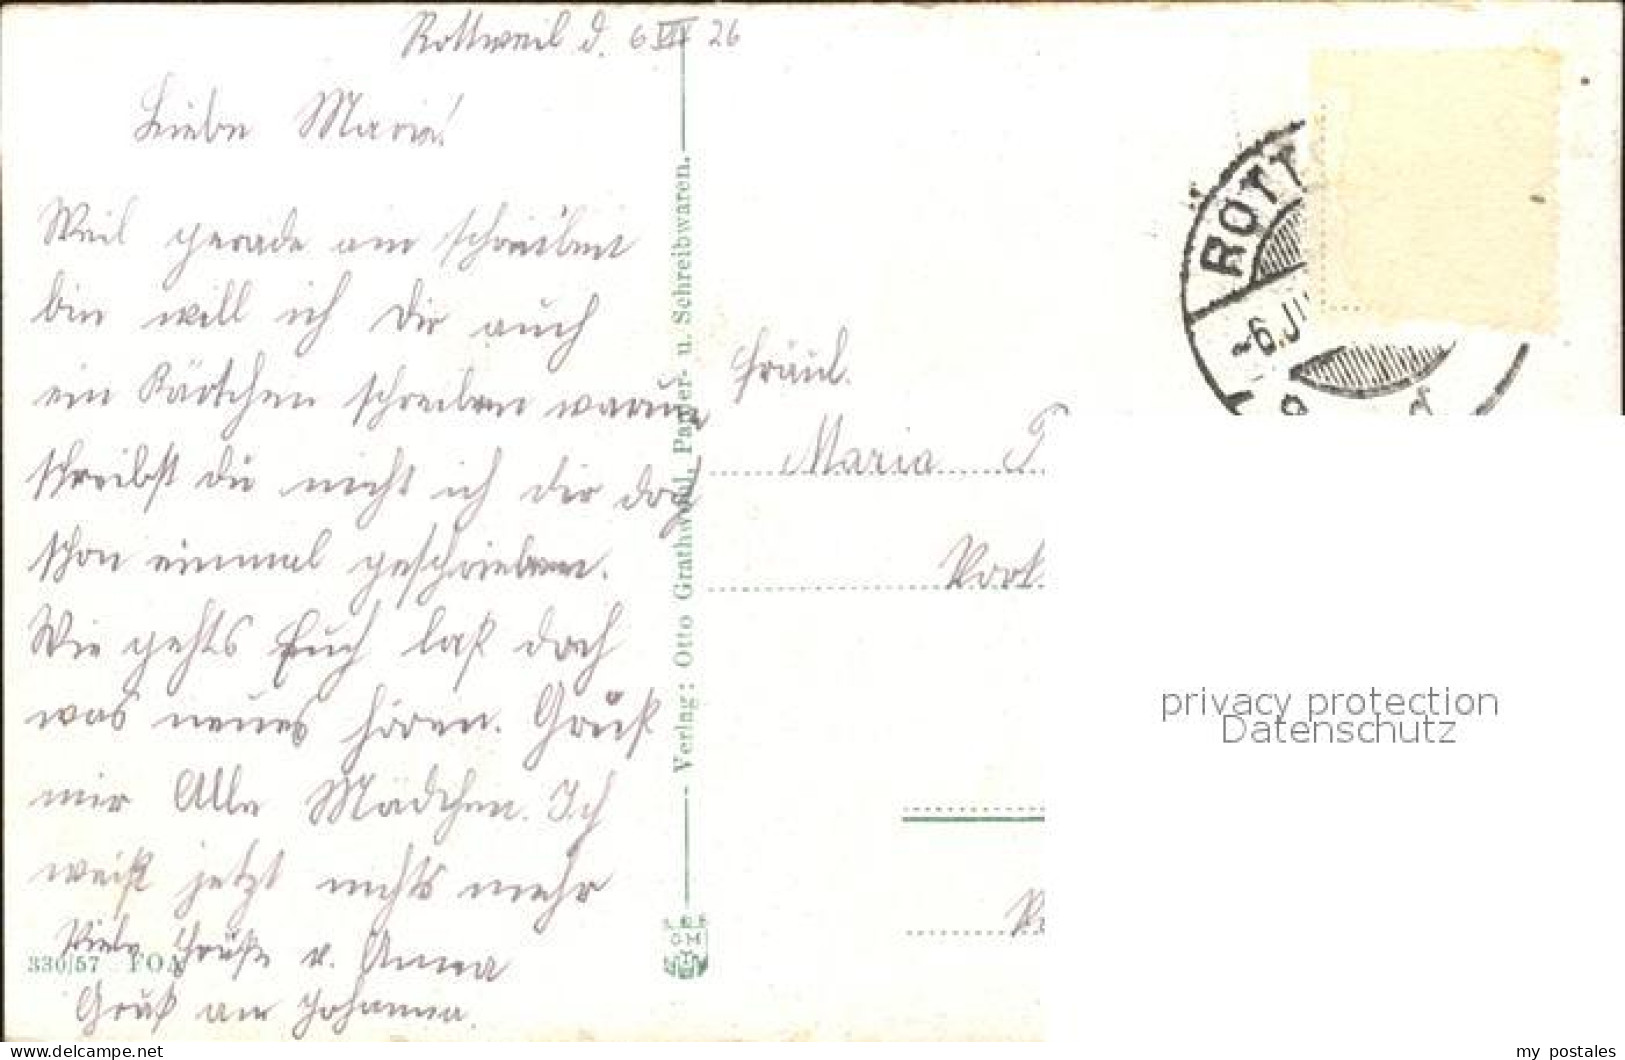 Rottweil d. 6 VII 26
Liebe Maria!
Weil gerade am schreiben
bin will ich Dir auch
ein Kärtchen schreiben warum
schreibst du nicht ich dir doch
schon einmal geschrieben.
Wie gehts Euch laß doch
was neues hören. Grüß
mir Alle Mädchen. Ich
weiß jetzt nichts mehr
Viele Grüße v. Anna
Gruß an Johanna.
330/57 FOA
Verlag: Otto Grathwohl, Papier- u. Schreibwaren.
ROTT
-6.JU
Fräul.
Maria
privacy protection
Datenschutz
my postales